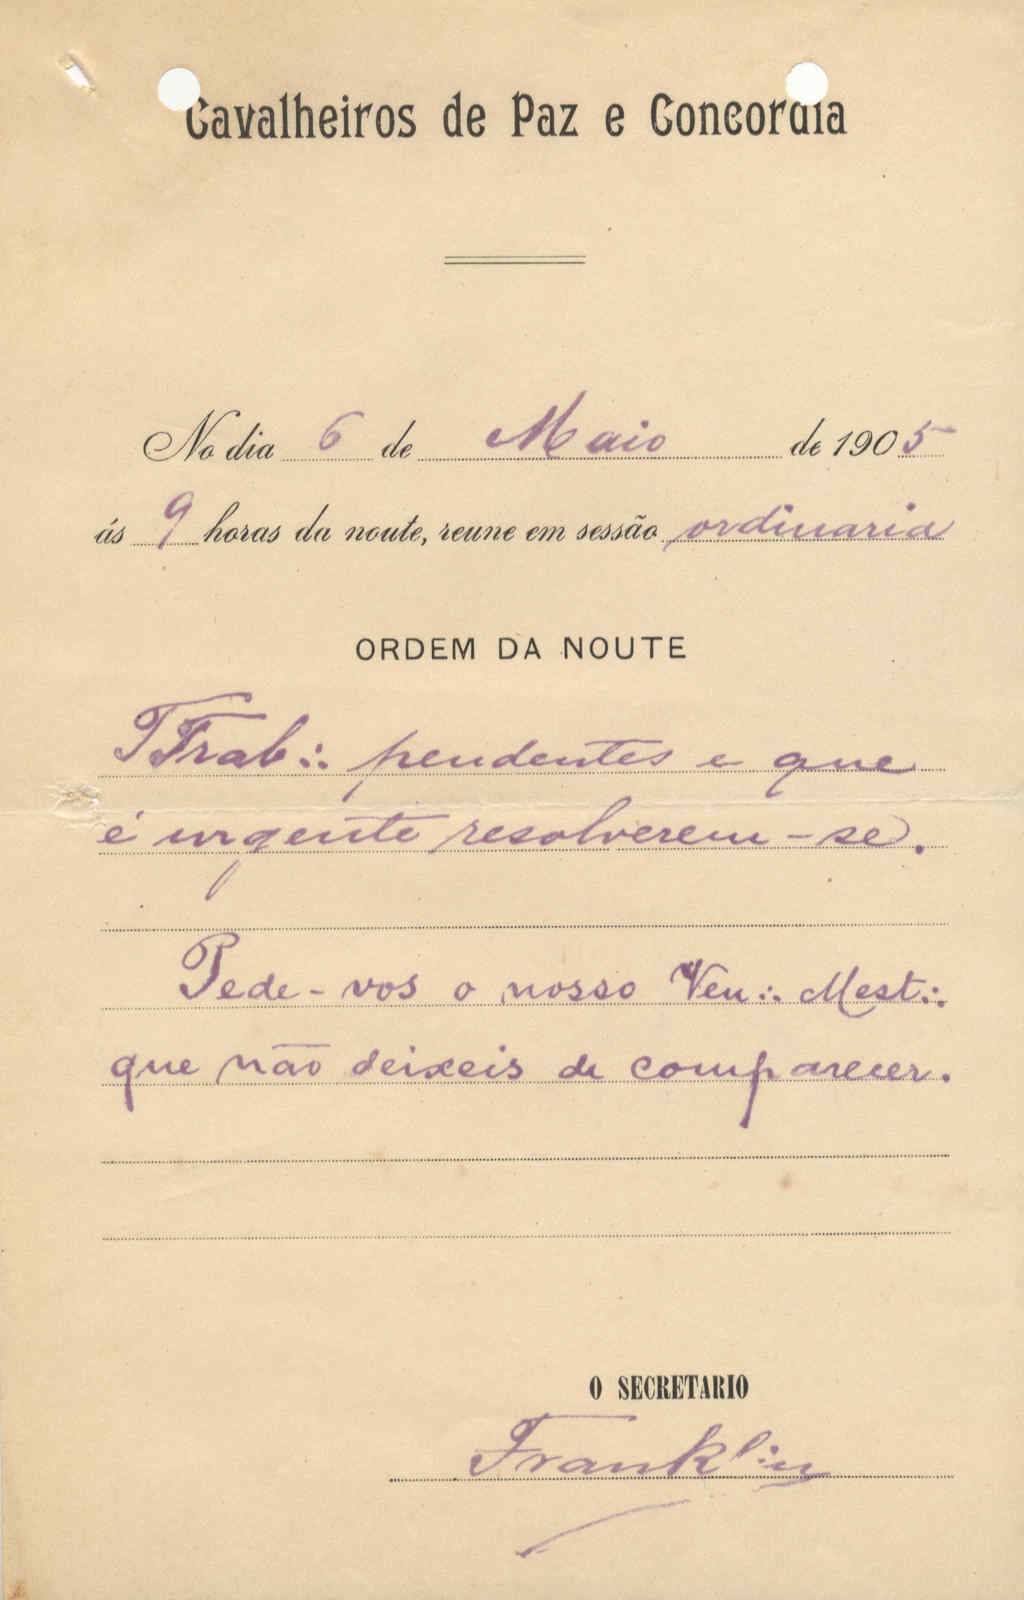 Cavalheiros de Paz e Concordia
No dia 6 de Maio de 1905
ás 9 horas da noute, reune em sessão ordinaria
ORDEM DA NOUTE
TTrab∴ pendentes e que
é urgente resolverem-se.
Pede-vos o nosso Ven∴ Mest∴
que não deixeis de comparecer.
O SECRETARIO
Franklin